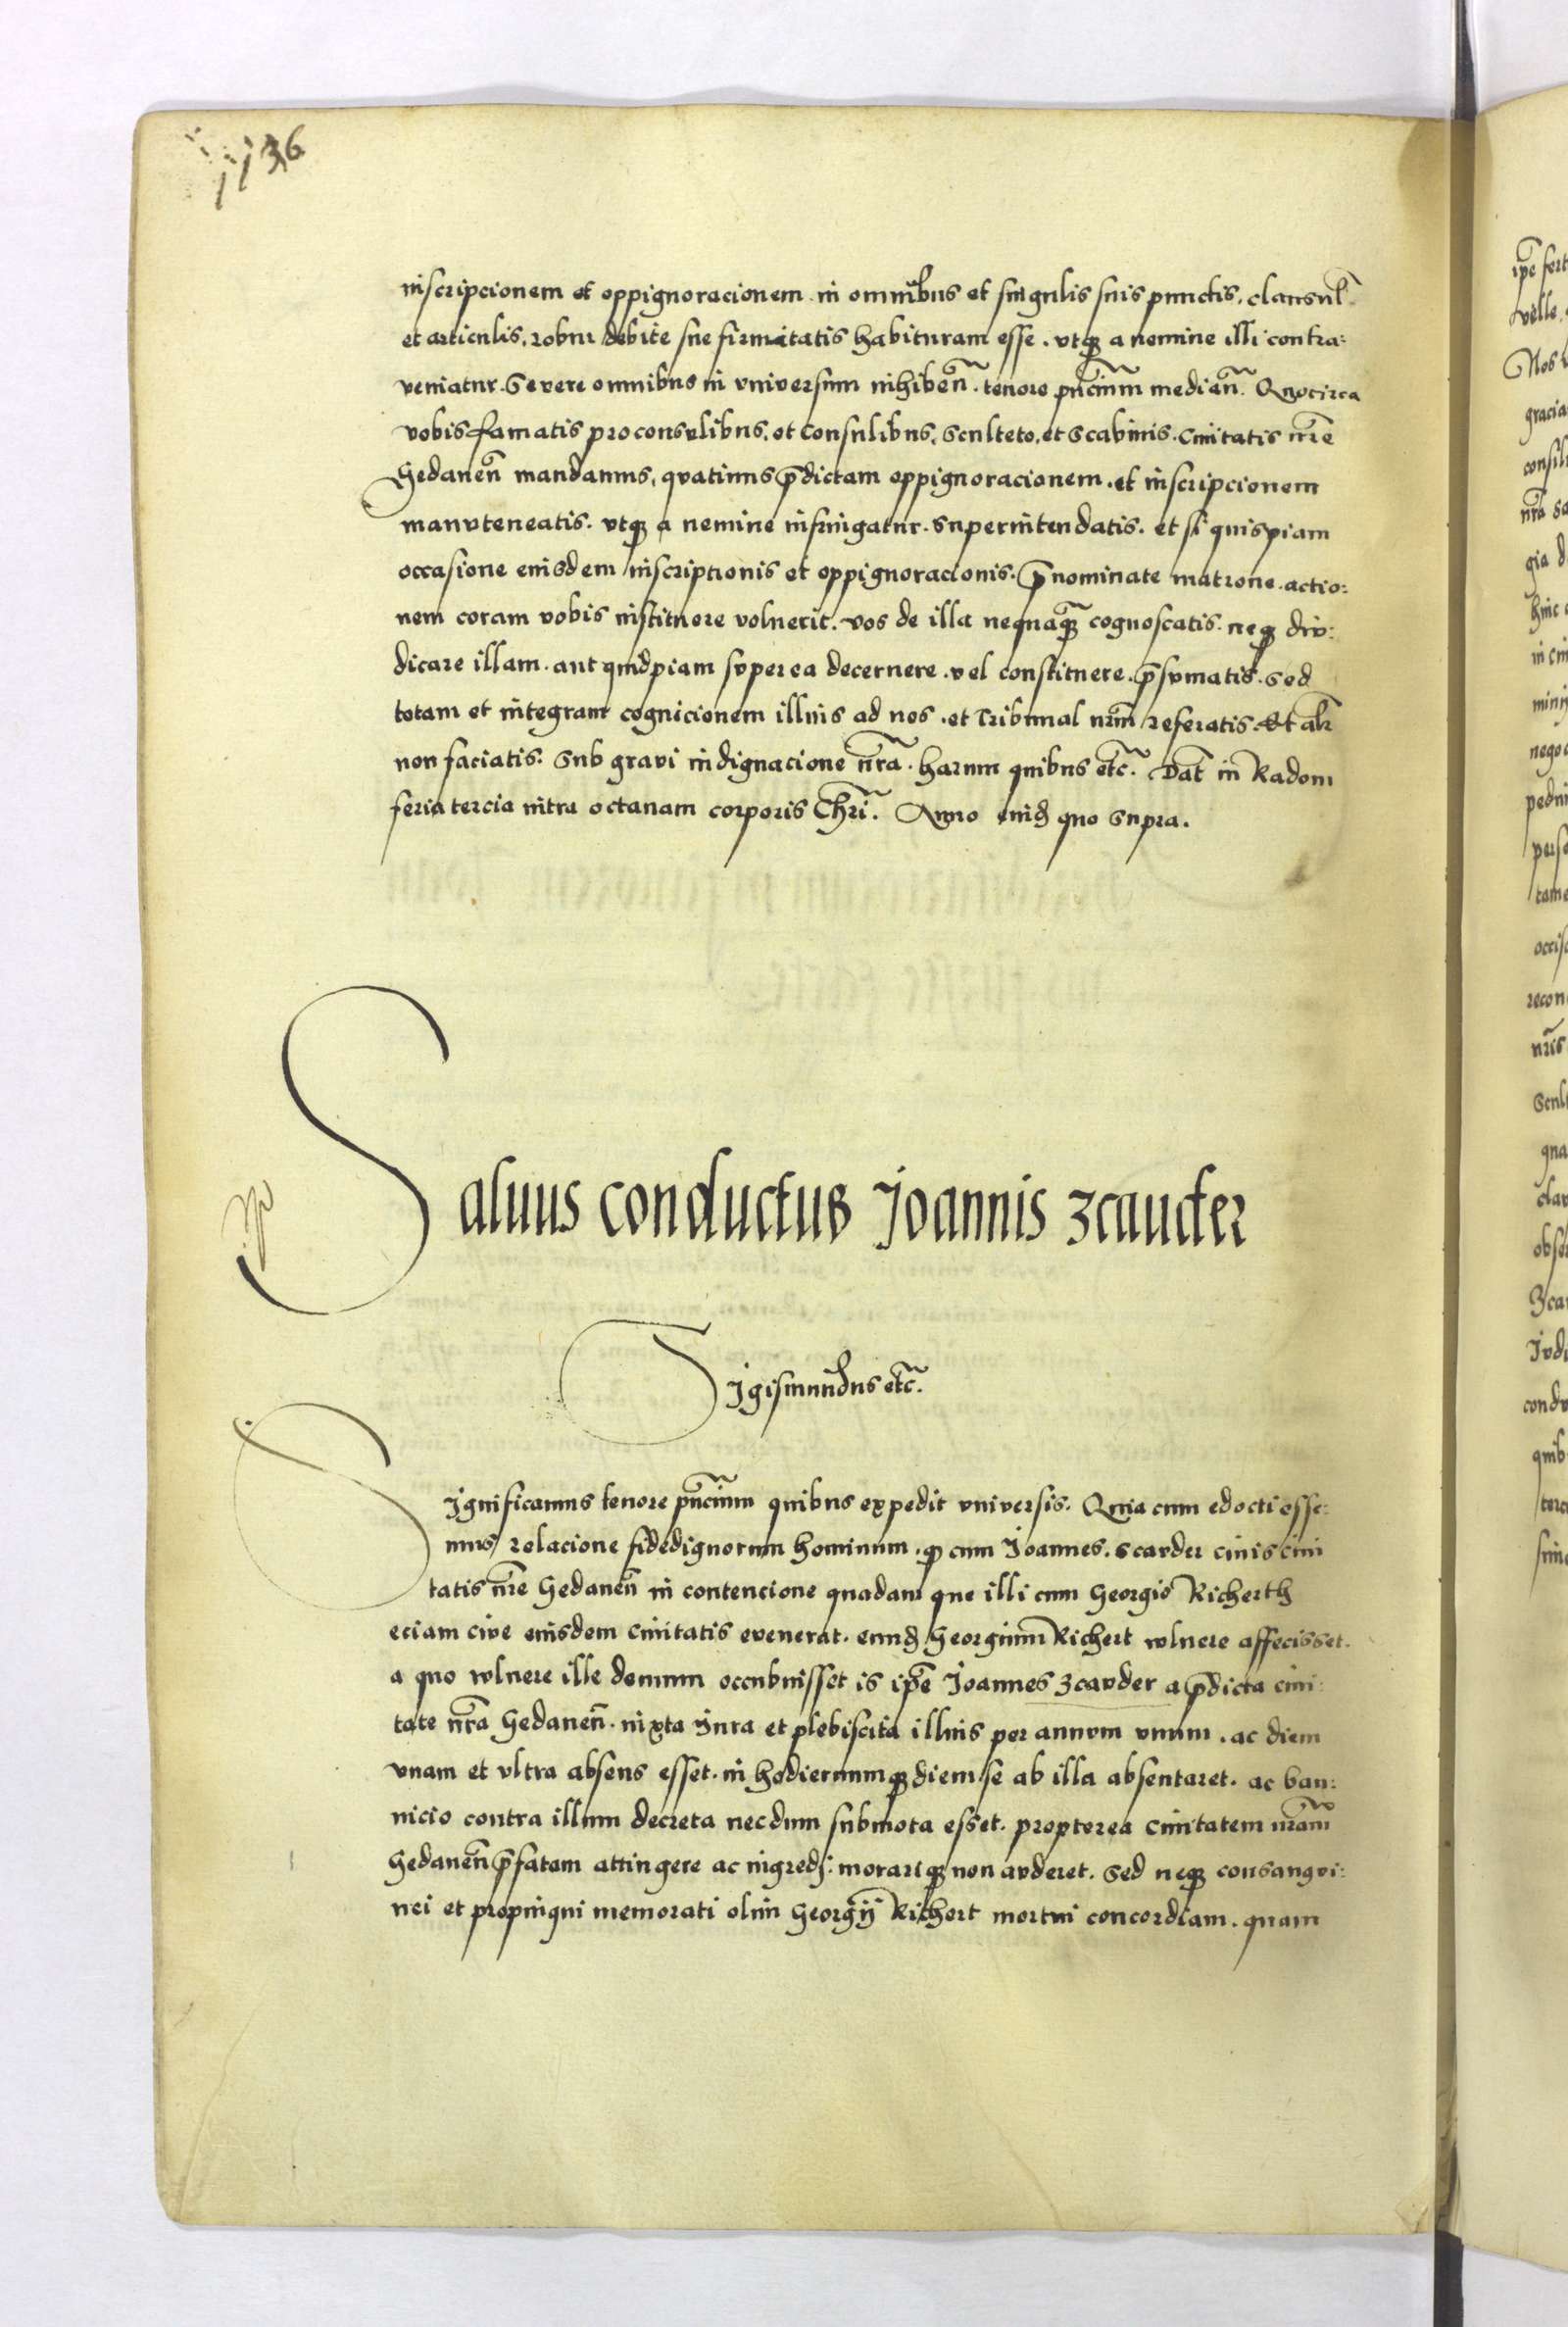 1136
inscripcionem et oppignoracionem in omnibus et singulis suis punctis, clausul̃
et articulis, robur debite sue firmitatis habituram esse. utqꝫ a nemine illi contra:
veniatur. Severe omnibus in universum inhibeñ. tenore pñcium medieñ. Quocirca
vobis famatis proconsulibus, et Consulibus, sculteto, et scabinis. Civitatis nr̃e
Gedaneñ mandamus, quatinus p̃dictam oppignoracionem. et inscripcionem
manuteneatis. utqꝫ a nemine infringatur. superintendatis. et si quispiam
occasione eiusdem inscriptionis et oppignoracionis. p̃nominate matrone. actio:
nem coram vobis instituere voluerit. vos de illa nequaqꝫ cognoscatis. neqꝫ diiu:
dicare illam. aut quidpiam super ea decernere. vel constituere. p̃sumatis. sed
totam et integram cognicionem illius ad nos. et Tribunal nr̃m referatis. Et al̃r
non faciatis. Sub gravi indignacione nr̃a. harum quibus etc̃. Dat̃ in Radom
feria tercia intra octavam corporis Chr̃i. Anno eiusd̃ quo supra.
Salvus conductus Joannis Zcauder
Sigismundus etc̃.
Significamus tenore pñcium quibus expedit universis. Quia cum edocti esse:
mus relacione fidedignorum hominum. qꝫ cum Joannes. Scauder civis civi
tatis nr̃e Gedaneñ in contencione quadam que illi cum Georgio Richerth
eciam cive eiusdem Civitatis evenerat. eund̃ Georgium Richert vulnere affecisset.
a quo vulnere ille demum occubuisset is ip̃e Joannes Zcauder a p̃dicta civi:
tate nr̃a Gedaneñ. iuxta iura et plebiscita illius per annum unum. ac diem
unam et ultra absens esset. in hodiernumqꝫ diem se ab illa absentaret. ac ban:
nicio contra illum decreta necdum submota esset. propterea Civitatem nr̃am
Gedaneñ p̃fatam attingere ac ingredi: morariqꝫ non auderet. sed neqꝫ consangui:
nei et propinqui memorati olim Georgij Richert mortui concordiam. quam